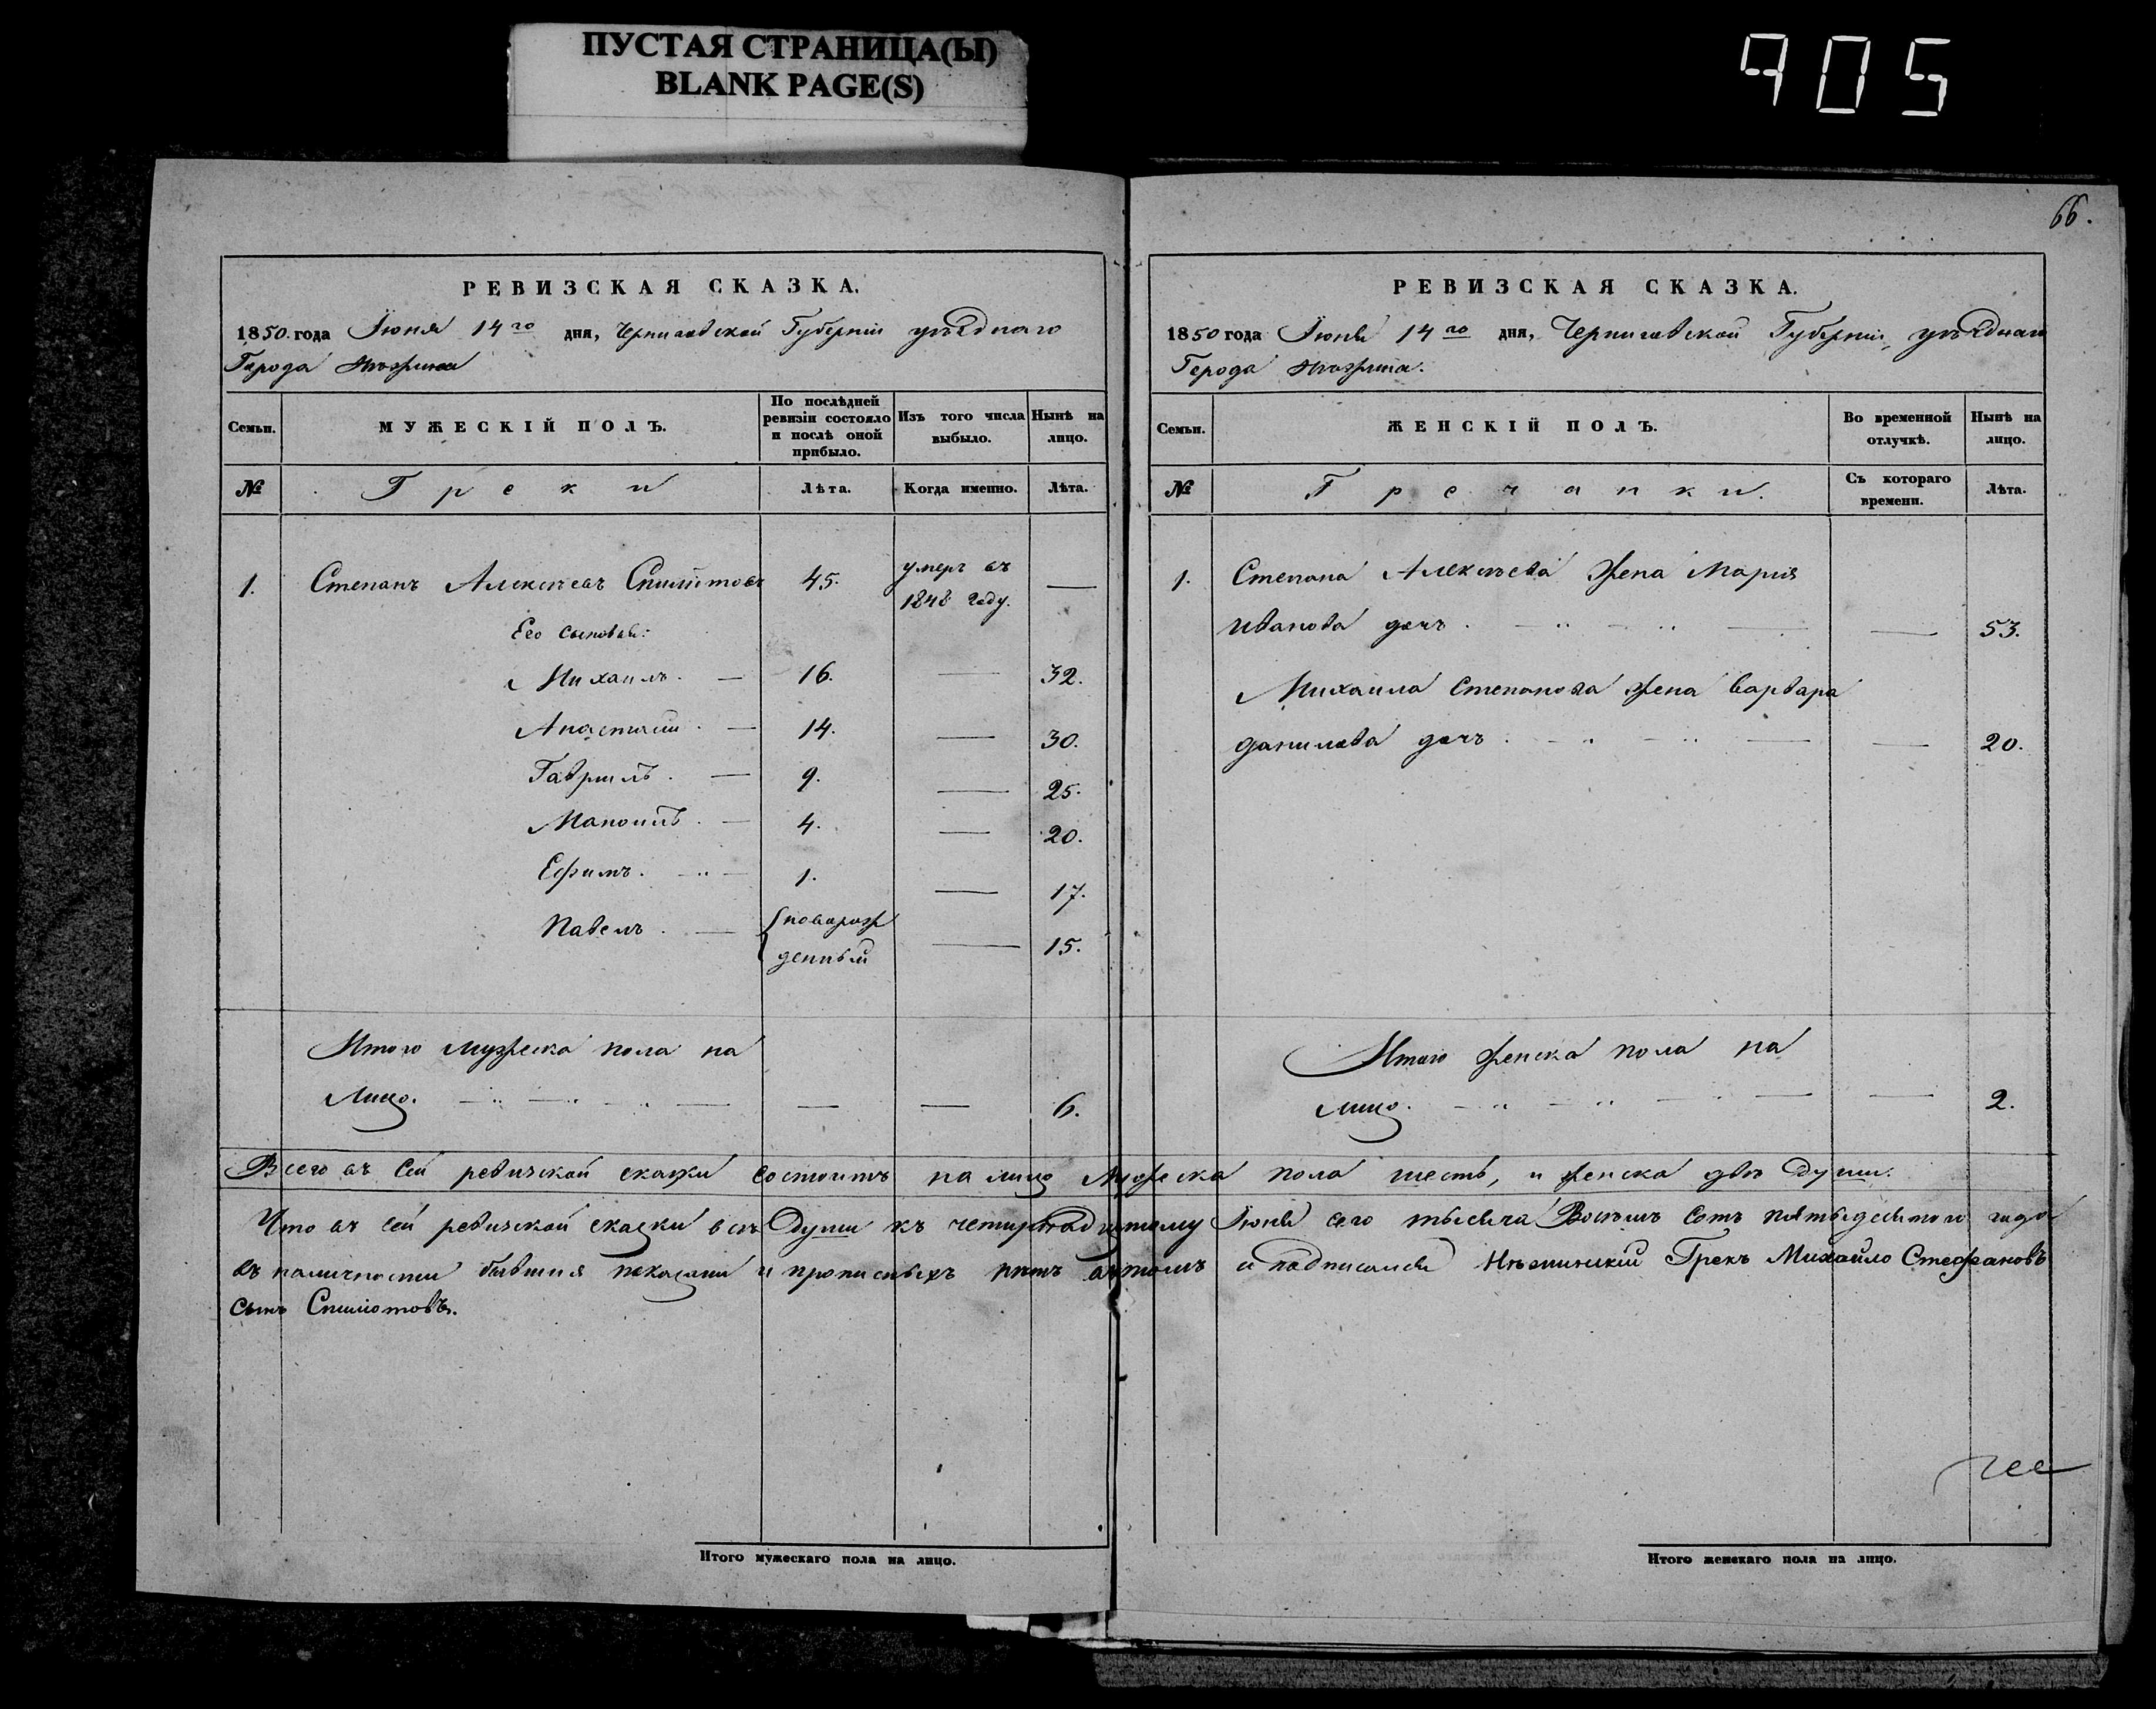 ПУСТАЯ СТРАНИЦА(Ы)
BLANK PAGE(S)
905
66.
РЕВИЗСКАЯ СКАЗКА.
1850 года Іюня 14го дня, Черниговской Губерніи уѣзднаго
Города Нѣжина
Семьи.
МУЖЕСКІЙ ПОЛЪ.
По послѣдней ревизіи состояло и послѣ оной прибыло.
Изъ того числа выбыло.
Нынѣ на лицо.
№
Греки
Лѣта.
Когда именно.
Лѣта.
1. Степанъ Алексѣевъ Спиліотовъ 45. умеръ въ 1848 году. —
Его сыновья:
Михаилъ. — 16. — 32.
Анастасій. — 14. — 30.
Гавріилъ. — 9. — 25.
Маноилъ. — 4. — 20.
Ефимъ. — 1. — 17.
Павелъ. — новорож
денный — 15.
Итого мужеска пола на
лицо. — — — 6.
РЕВИЗСКАЯ СКАЗКА.
1850 года Іюня 14го дня, Черниговской Губерніи, уѣзднаго
Города Нѣжина.
Семьи.
ЖЕНСКІЙ ПОЛЪ.
Во временной отлучкѣ.
Нынѣ на лицо.
№
Гречанки.
Съ котораго времени.
Лѣта.
1. Степана Алексѣева жена Марія
Иванова дочь. — — 53.
Михаила Степанова жена Варвара
Данилова дочь. — — 20.
Итого женска пола на
лицо. — — 2.
Всего въ сей ревизской скажки состоитъ на лицо мужеска пола шесть, и женска двѣ души.
Что въ сей ревизской скаски всѣ души къ четырнадцатому Іюня сего тысяча Восемъ сотъ пятьдесятого года
въ наличности бывшія показани и прописныхъ нѣтъ въ томъ и подписался Нѣжинскій Грекъ Михайло Стефановъ
сынъ Спиліотовъ.
Итого мужескаго пола на лицо.
Итого женскаго пола на лицо.